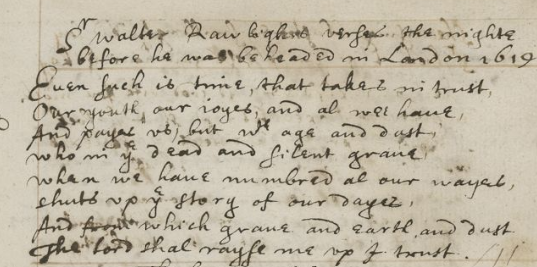 Sr Walter Rawleighs verses the nighte
before he was beheaded in London 1619
Euen such is time, that takes in trust,
Our youth, our ioyes, and al we haue,
And payes vs, but wth age and dust,
who in ye dead and silent graue
when we haue numbred al our wayes,
shuts vp ye story of our dayes,
And from which graue and earth and dust
The lord shal rayse me vp I trust.